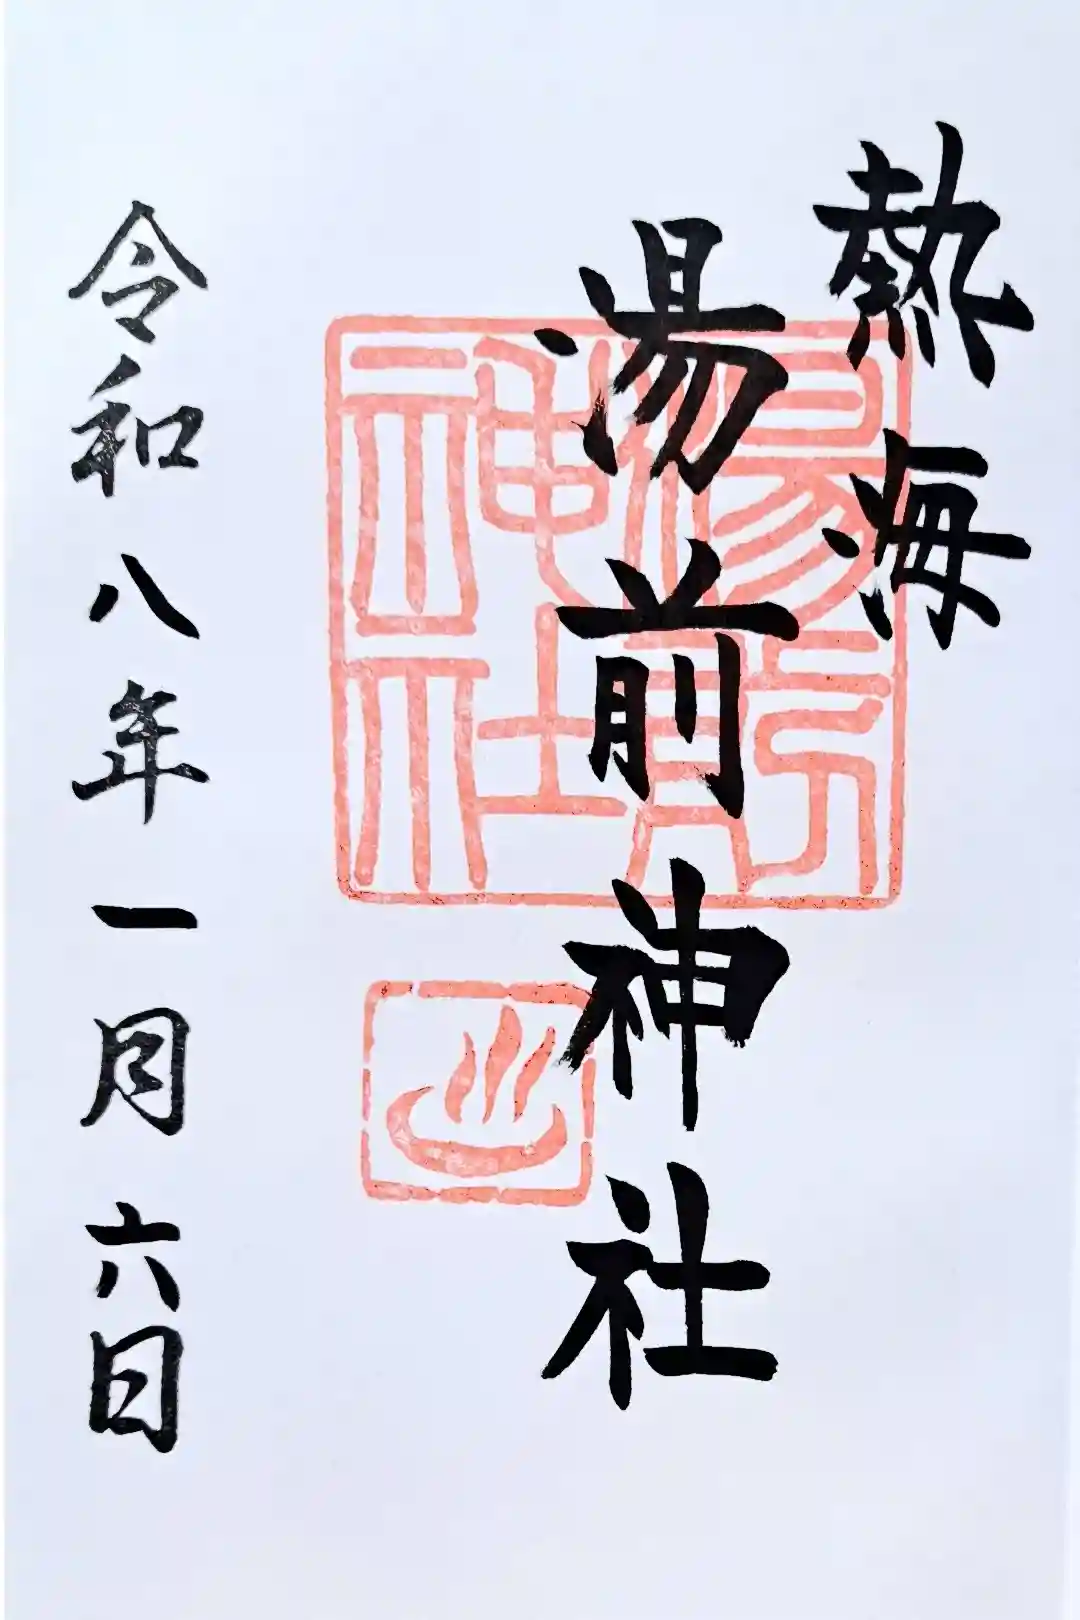 熱海
湯前神社
湯前
神社
令和八年一月六日